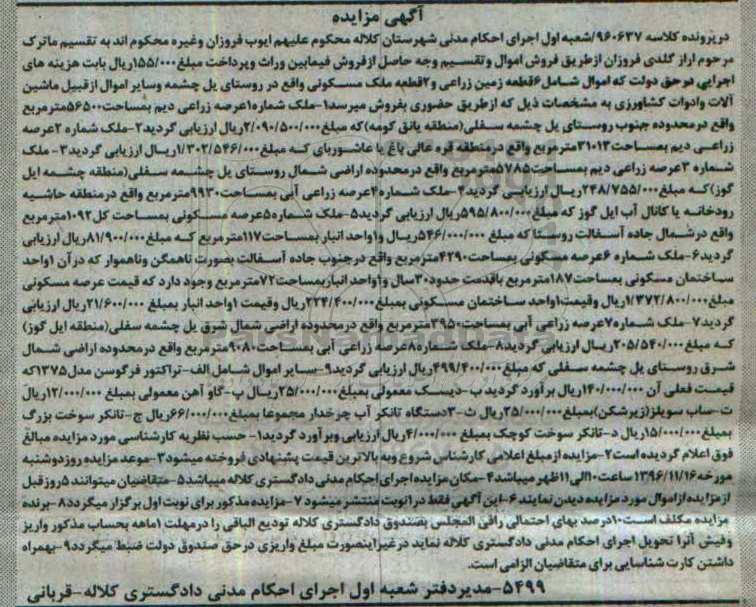 آگهی مزایده
در پرونده کلاسه ۹۶۰۶۳۷/شعبه اول اجرای احکام مدنی شهرستان کلاله محکوم علیهم ایوب فروزان وغیره محکوم اند به تقسیم ماترک
مرحوم اراز گلدی فروزان از طریق فروش اموال وتقسیم وجه حاصل ازفروش فیمابین وراث وپرداخت مبلغ ۱۵۵/۰۰۰ریال بابت هزینه های
اجرایی درحق دولت که اموال شامل۶قطعه زمین زراعی و۲قطعه ملک مسکونی واقع در روستای یل چشمه وسایر اموال ازقبیل ماشین
آلات وادوات کشاورزی به مشخصات ذیل که ازطریق حضوری بفروش میرسد۱-ملک شماره۱عرصه زراعی دیم بمساحت۵۶۵۰۰مترمربع
واقع درمحدوده جنوب روستای یل چشمه سفلی(منطقه یانق کومه)که مبلغ۲/۰۹۰/۵۰۰/۰۰۰ریال ارزیابی گردید۲-ملک شماره ۲عرصه
زراعی دیم بمساحت۳۱۰۱۳مترمربع واقع درمنطقه قره عالی باغ یا عاشوربای که مبلغ۱/۳۰۲/۵۴۶/۰۰۰ریال ارزیابی گردید۳- ملک
شماره ۳عرصه زراعی دیم بمساحت۵۷۸۵مترمربع واقع درمحدوده اراضی شمال روستای یل چشمه سفلی(منطقه چشمه ایل
گوز)که مبلغ۲۴۸/۷۵۵/۰۰۰ریال ارزیابی گردید۴-ملک شماره۴عرصه زراعی آبی بمساحت۹۹۳۰مترمربع واقع درمنطقه حاشیه
رودخانه یا کانال آب ایل گوز که مبلغ۵۹۵/۸۰۰/۰۰۰ریال ارزیابی گردید۵-ملک شماره۵عرصه مسکونی بمساحت کل۱۰۹۲مترمربع
واقع درشمال جاده آسفالت روستا که مبلغ ۵۴۶/۰۰۰/۰۰۰ریال و۱واحد انبار بمساحت۱۱۷مترمربع که مبلغ ۸۱/۹۰۰/۰۰۰ریال ارزیابی
گردید۶-ملک شماره ۶عرصه مسکونی بمساحت۴۲۹۰مترمربع واقع درجنوب جاده آسفالت بصورت ناهمگن وناهموار که درآن ۱واحد
ساختمان مسکونی بمساحت۱۸۷مترمربع باقدمت حدود۳۰سال و۱واحد انباربمساحت۷۲مترمربع وجود دارد که قیمت عرصه مسکونی
مبلغ۱/۳۷۲/۸۰۰/۰۰۰ریال وقیمت۱واحد ساختمان مسکونی بمبلغ۲۲۴/۴۰۰/۰۰۰ریال وقیمت ۱واحد انبار بمبلغ ۲۱/۶۰۰/۰۰۰ریال ارزیابی
گردید۷-ملک شماره۷عرصه زراعی آبی بمساحت۳۹۵۰مترمربع واقع درمحدوده اراضی شمال شرق یل چشمه سفلی(منطقه ایل گوز)
که مبلغ ۲۰۵/۵۴۰/۰۰۰ریال ارزیابی گردید۸-ملک شماره۸عرصه زراعی آبی بمساحت۹۰۸۰مترمربع واقع درمحدوده اراضی شمال
شرق روستای یل چشمه سفلی که مبلغ۴۹۹/۴۰۰/۰۰۰ریال ارزیابی گردید۹-سایر اموال شامل الف-تراکتور فرگوسن مدل۱۳۷۵که
قیمت فعلی آن ۱۴۰/۰۰۰/۰۰۰ریال برآورد گردید ب-دیسک معمولی بمبلغ۲۵/۰۰۰/۰۰۰ریال پ-گاو آهن معمولی بمبلغ ۱۲/۰۰۰/۰۰۰ریال
ت-ساب سویلز(زیرشکن)بمبلغ۲۵/۰۰۰/۰۰۰ریال ث-۳دستگاه تانکر آب چرخدار مجموعا بمبلغ۶۶/۰۰۰/۰۰۰ریال ج-تانکر سوخت بزرگ
بمبلغ۱۵/۰۰۰/۰۰۰ریال د-تانکر سوخت کوچک بمبلغ ۴/۰۰۰/۰۰۰ریال ارزیابی وبرآورد گردید۱- حسب نظریه کارشناسی مورد مزایده مبالغ
فوق اعلام گردیده است۲-مزایده ازمبلغ اعلامی کارشناس شروع وبه بالاترین قیمت پیشنهادی فروخته میشود۳-موعد مزایده روزدوشنبه
مورخه۱۳۹۶/۱۱/۱۶ ساعت۱۰الی۱۱ظهر میباشد۴-مکان مزایده اجرای احکام مدنی دادگستری کلاله میباشد۵-متقاضیان میتوانند ۵روز قبل
از مزایده ازاموال مورد مزایده دیدن نمایند۶-این آگهی فقط در۱نوبت منتشر میشود۷-مزایده مذکور برای نوبت اول برگزار میگردد۸-برنده
مزایده مکلف است۱۰درصد بهای احتمالی رافی المجلس بصندوق دادگستری کلاله تودیع الباقی را درمهلت ۱ماهه بحساب مذکور واریز
وفیش آنرا تحویل اجرای احکام مدنی دادگستری کلاله نماید درغیراینصورت مبلغ واریزی درحق صندوق دولت ضبط میگردد۹-بهمراه
داشتن کارت شناسایی برای متقاضیان الزامی است.
۵۴۹۹-مدیردفتر شعبه اول اجرای احکام مدنی دادگستری کلاله-قربانی